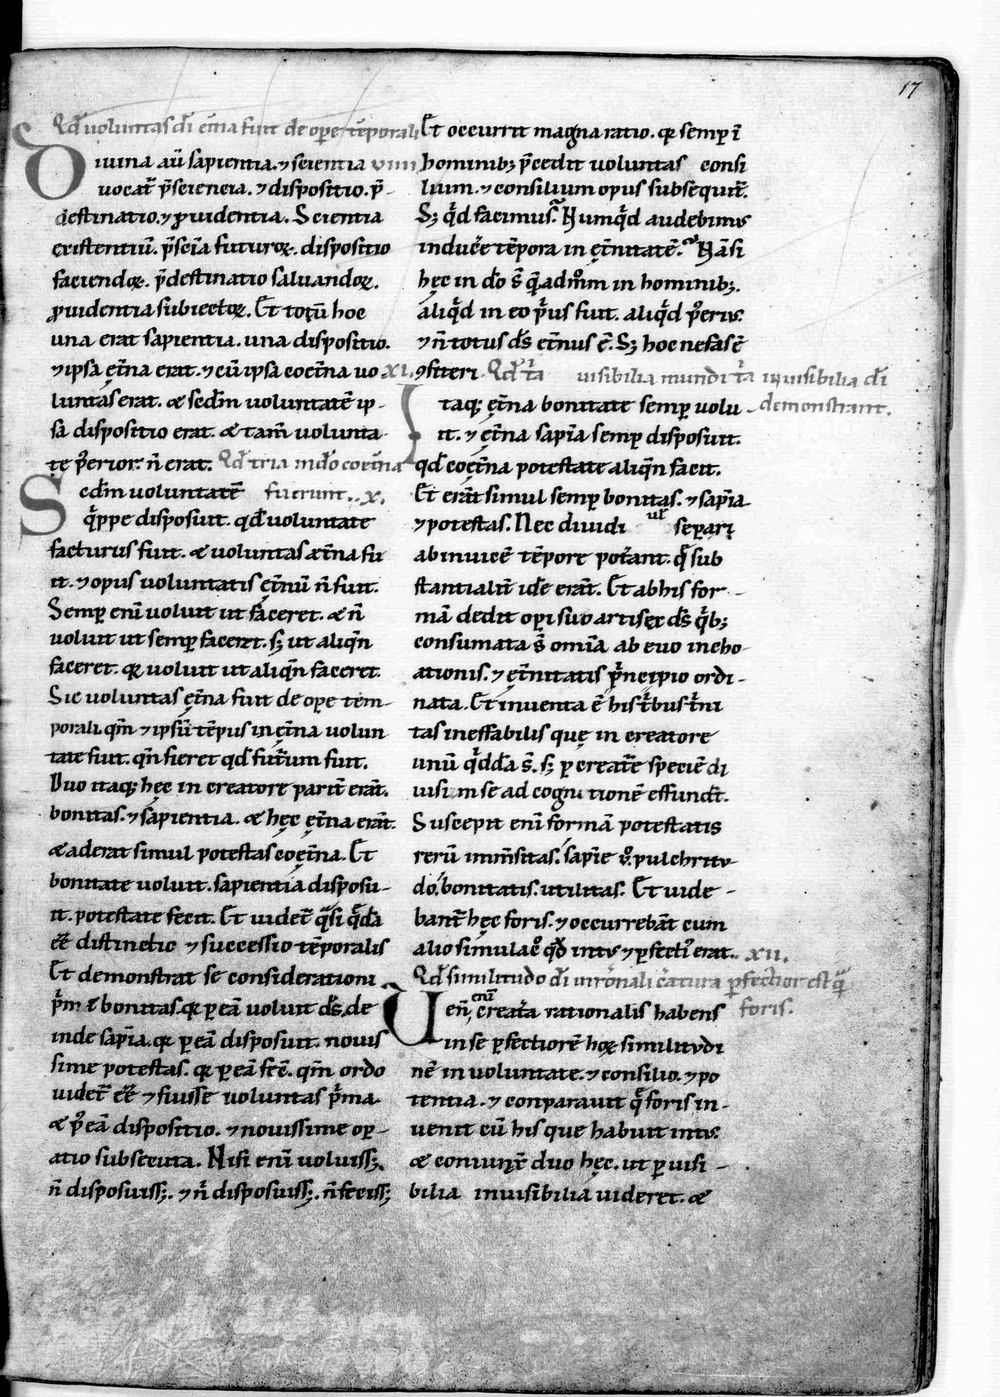 17
Qd̄ voluntas dī et̄na fuit de oꝑe tēporali
Diuina aū sapientia. ⁊ scientia viiii
uocat̄ p̄scientia. ⁊ dispositio. p̄-
destinatio. ⁊ ꝓuidentia. Scientia
existentiū. p̄scīa futuroꝝ. dispositio
faciendoꝝ. p̄destinatio saluandoꝝ.
ꝓuidentia subiectoꝝ. Et totū hoc
una erat sapientia. una dispositio.
⁊ ipsa et̄na erat. ⁊ cū ipsa coet̄na uo
luntas erat. & scdm̄ uoluntatē ip-
sa dispositio erat. & tam̄ uolunta-
te p̓erior n̄ erat. Qd̄ tria in dō coet̄na
Scdm̄ uoluntatē fuerunt. x.
q̓ppe disposuit. qd̄ uoluntate
facturus fuit. & uoluntas æt̄na fu
it. ⁊ opus uoluntatis et̄nū n̄ fuit.
Semꝑ enī uoluit ut faceret. & n̄
uoluit ut semꝑ faceret. sꝫ ut aliqn̄
faceret. qꝛ uoluit ut aliqn̄ faceret.
Sic uoluntas et̄na fuit de oꝑe tem-
porali. qm̄ ⁊ ipsū tēpus in et̄na uolun
tate fuit. qn̄ fieret qd̄ fut̄um fuit.
Duo itaqꝫ hęc in creatore parit̄ erāt.
bonitas. ⁊ sapientia. & hęc et̄na erāt.
& aderat simul potestas coet̄na. Et
bonitate uoluit. sapientia disposu-
it. potestate fecit. Et uidet̄ q̓si q̓dā
eē̄ distinctio ⁊ successio tēporalis
Et demonstrat se considerationi
p̓m ł bonitas. qꝛ ꝑ eā uoluit dꝰ. de
inde sapīa. qꝛ ꝑ eā disposuit. nouis
sime potestas. qꝛ ꝑ eā fec̄. qm̄ ordo
uidet̄ eē̄ ⁊ fuisse uoluntas p̓ma.
& p̓ eā dispositio. ⁊ nouissime oꝑ-
atio subsecuta. Nisi enī uoluissꝫ
n̄ disposuissꝫ. ⁊ n̓ disposuissꝫ. n̄ fecissꝫ
Et occurrit magna ratio. qꝛ semꝑ ī
hominibꝫ p̄cedit uoluntas consi
lium. ⁊ consilium opus subsequit̄.
Sꝫ q̓d facimus? Numq̓d audebimus
induc̄e tēpora in et̄nitatē? Nā si
hęc in dō s̄ q̄admōm in hominibꝫ.
aliq̓d in eo p̓us fuit. aliq̓d p̓eriꝰ.
⁊ n̄ totus dꝰ et̄nus ē. Sꝫ hoc nefas ē
xi. ꝯfiteri. Qd̄ t̄a uisibilia mundi t̄a inuisibilia dī
Itaqꝫ et̄na bonitate semꝑ uolu demonstrant.
it. ⁊ et̄na sapīa semꝑ disposuit.
qd̄ coet̄na potestate aliqn̄ facit.
Et erāt simul semꝑ bonitas. ⁊ sapīa
⁊ potestas. Nec diuidi ul̄ seꝑari
ab inuicē tēpore pot̄ant. q̓ sub
stantialit̄ idē erāt. Et ab his for-
mā dedit oꝑi suo artifex dꝰ q̓bꝫ
consumata s̄ omīa ab euo incho-
ationis. ⁊ et̄nitatis p̓ncipio ordi-
nata. Et inuenta ē his t̓bus t̓ni
tas ineffabilis que in creatore
unū q̓dda s̄. sꝫ ꝑ creat̄e speciē di
uisi in se ad cognitionē effundt̄.
Suscepit enī formā potestatis
rerū inm̄sitas. sapīe v̊. pulchritu-
do. bonitatis. utilitas. Et uide-
bant̄ hęc foris. ⁊ occurrebāt cum
alio simulac̊ q̓d intus ⁊ ꝑfectiꝰ erat. xii.
Qd̄ similitudo dī in rōnali c̓atura ꝑfectior est q̓
Uen̄ enī creata rationalis habens foris.
in se ꝑfectiorē hoꝝ similitudi
nē in uoluntate. ⁊ consilio. ⁊ po
tentia. ⁊ conparauit q̓ foris in-
uenit cū his que habuit intus.
& coniunx̄ duo hęc. ut ꝑ uisi-
bilia inuisibilia uideret. &